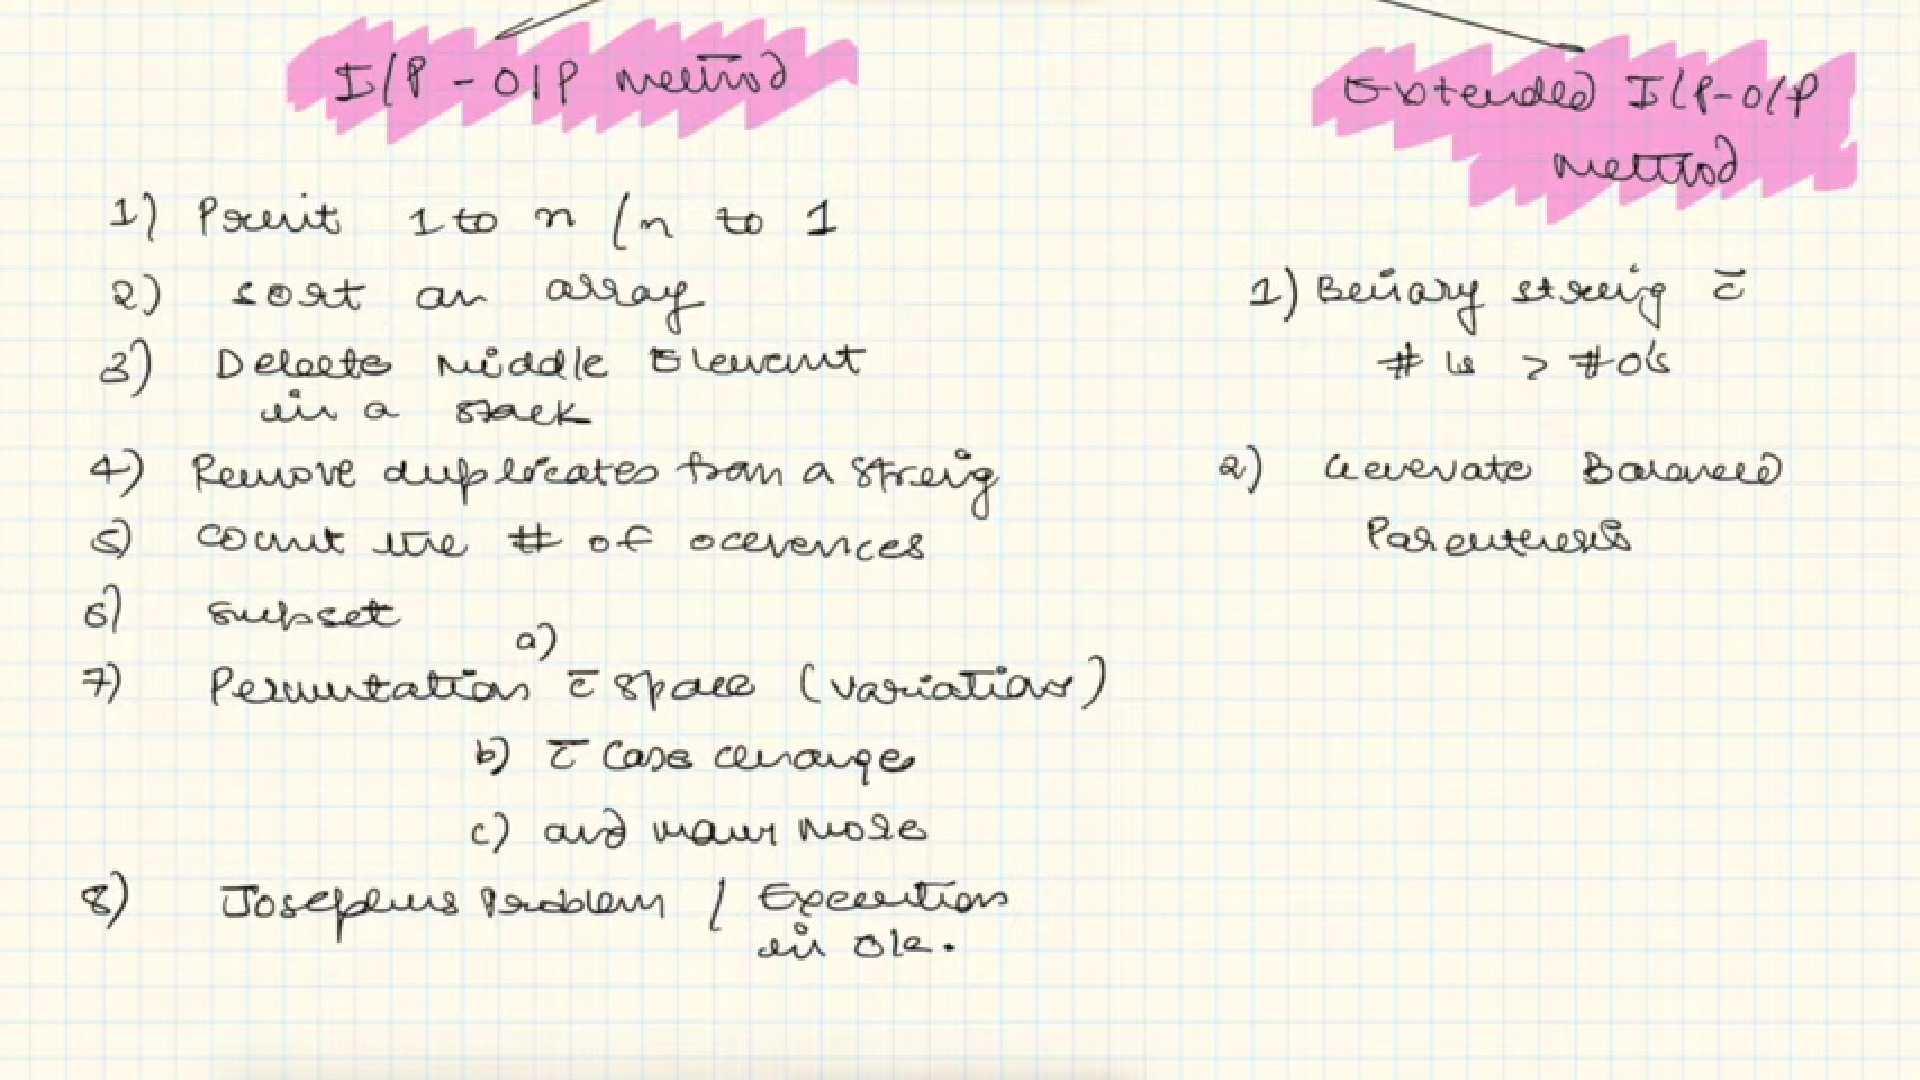 I/P - O/P Method
1) Print 1 to n / n to 1
2) sort an array
3) Delete Middle Element
in a stack
4) Remove duplicates from a string
5) count the # of occurences
6) subset
7) Permutation a) c̄ space (variation)
b) c̄ case change
c) and many more
8) Josephus Problem / Execution
in
Extended I/P-O/P
Method
1) Binary string c̄
# 1s > # 0's
2) Generate Balanced
Parenthesis